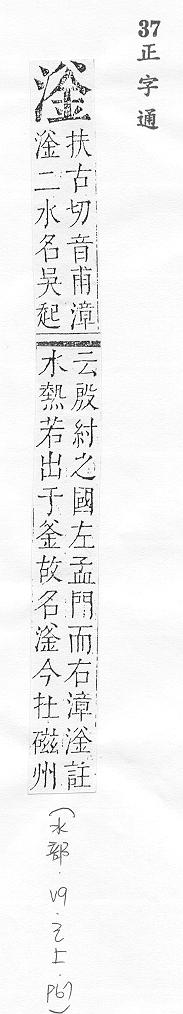 37正字通
滏
扶古切音甫漳
滏二水名吳起
云殷紂之國左孟門而右漳滏註
水熱若出于釜故名滏今在磁州
(水部.V9.巳上.P67)